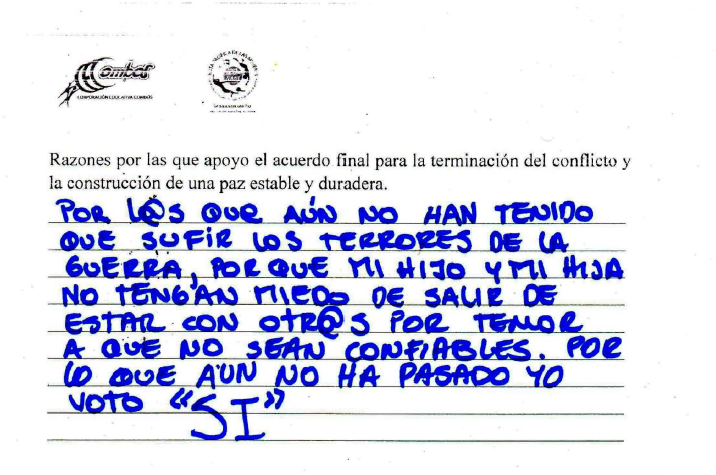 Combos
CORPORACIÓN EDUCATIVA COMBOS
Razones por las que apoyo el acuerdo final para la terminación del conflicto y
la construcción de una paz estable y duradera.
POR L@S QUE AÚN NO HAN TENIDO
QUE SUFIR LOS TERRORES DE LA
GUERRA, PORQUE MI HIJO Y MI HIJA
NO TENGAN MIEDO DE SALIR DE
ESTAR CON OTR@S POR TEMOR
A QUE NO SEAN CONFIABLES. POR
LO QUE AÚN NO HA PASADO YO
VOTO "SI"